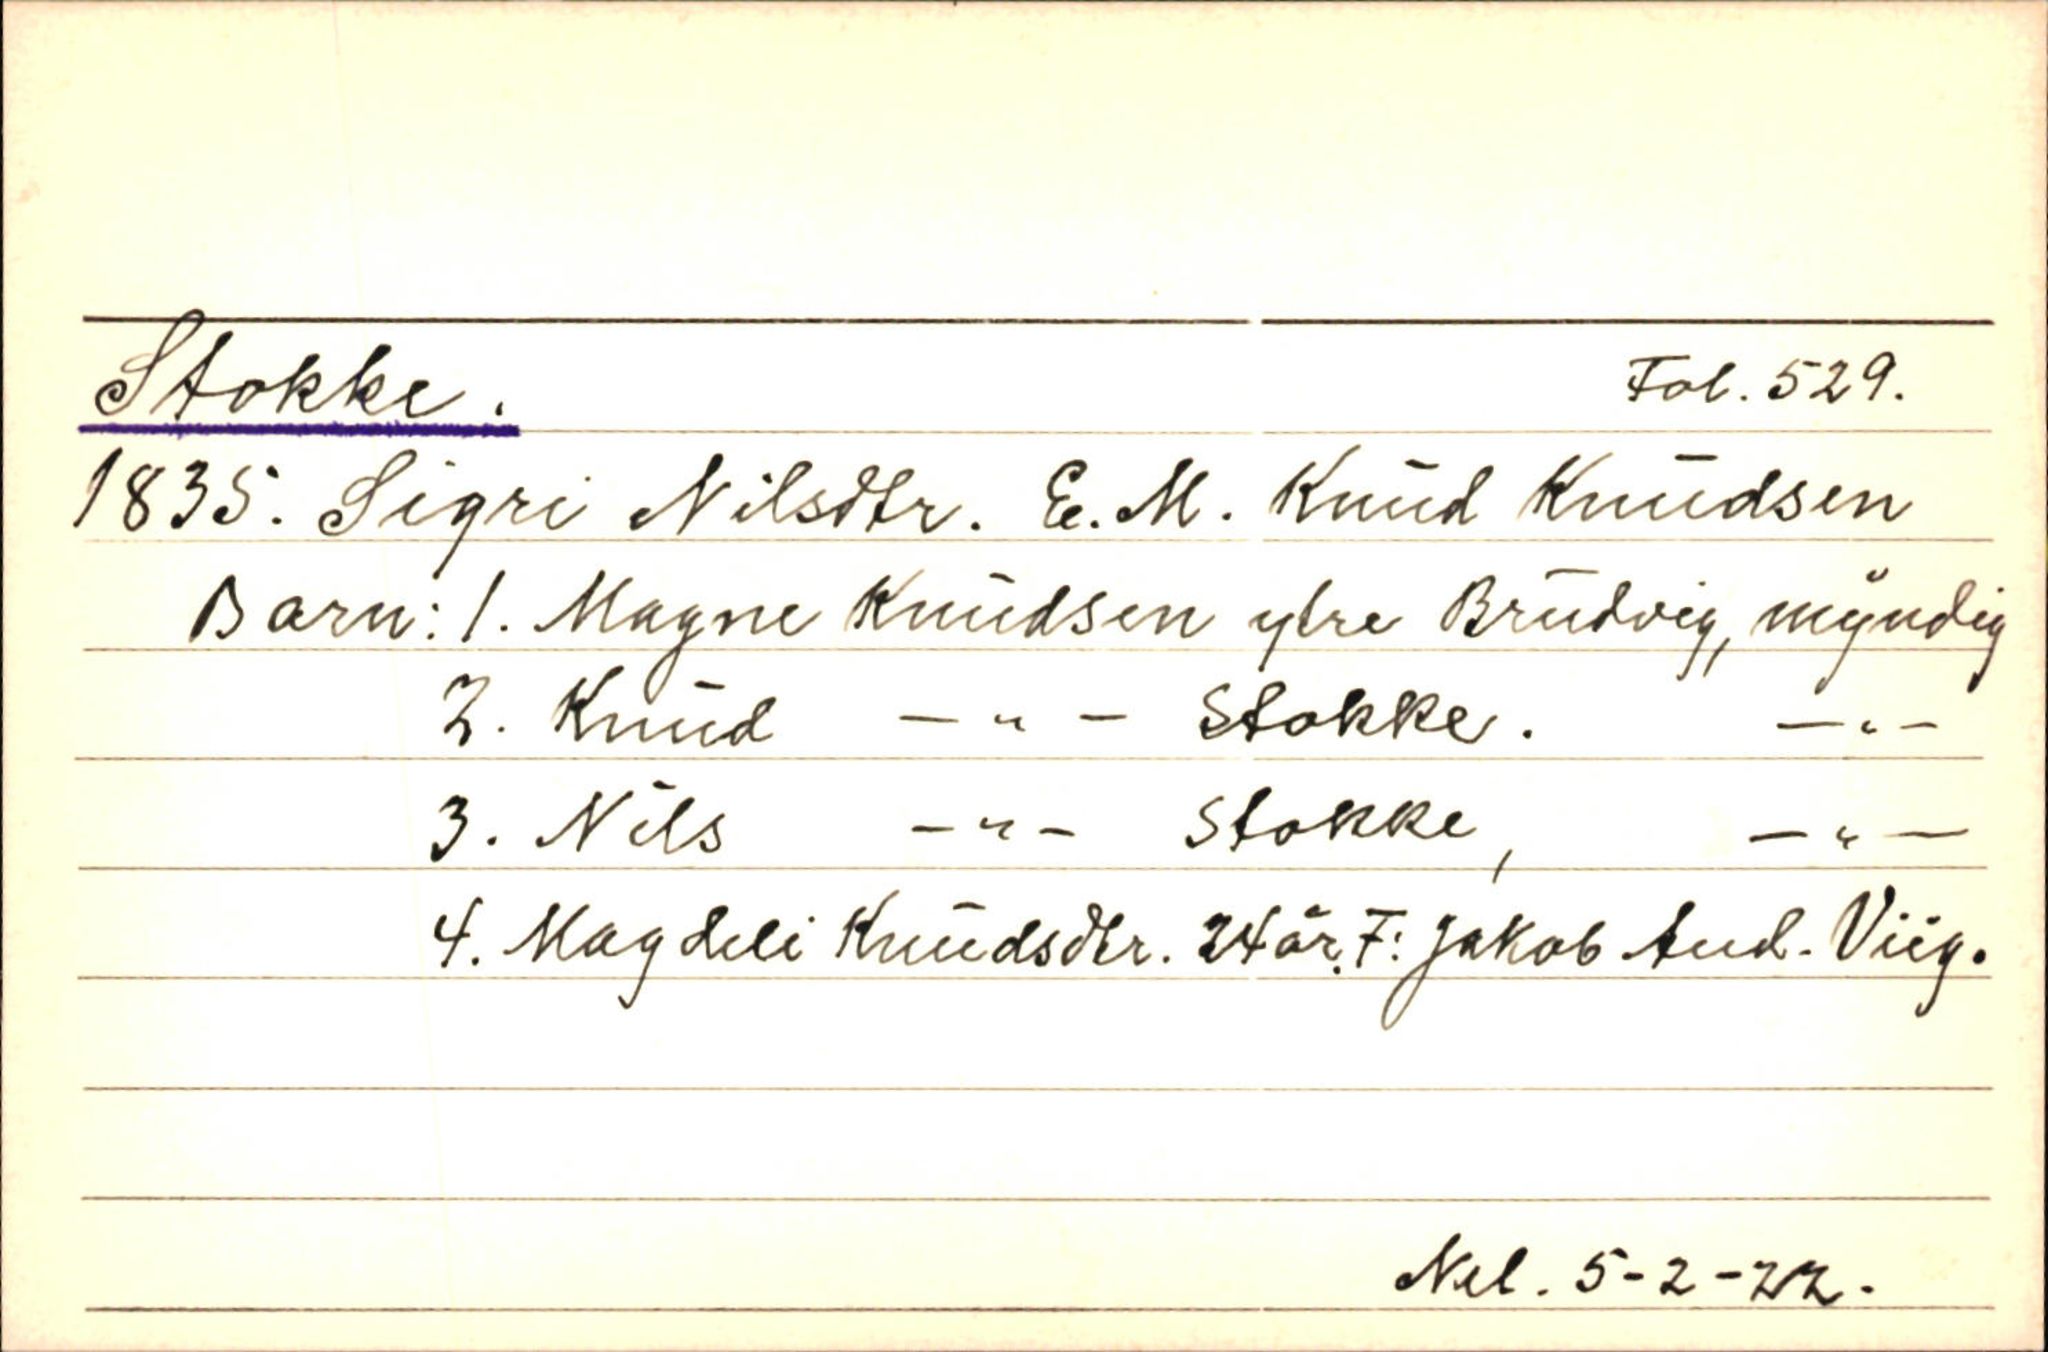 Stokke. Fol. 529.
1835. Sigri Nilsdtr. E. M. Knud Knudsen
Barn: 1. Magne Knudsen ytre Brudvig, myndig
2. Knud — " — Stokke. — " —
3. Nils — " — Stokke, — " —
4. Magdeli Knudsdtr. 24 år. F: Jakob And. Viig.
Nel. 5-2-22.